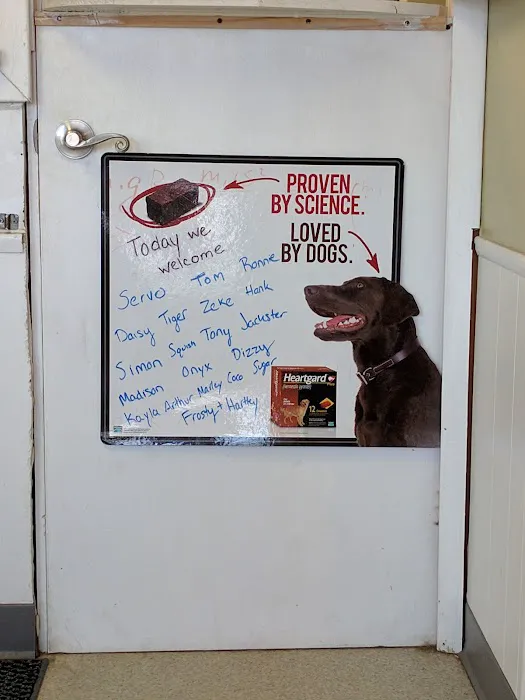 PROVEN
BY SCIENCE.
LOVED
BY DOGS.
Today we
welcome
Servo Tom Ronnie
Daisy Tiger Zeke Hank
Simon Squish Tony Jackster
Madison Onyx Dizzy
Kayla Arthur Marley Coco Sugar
Frosty + Hartley
Heartgard Plus
12